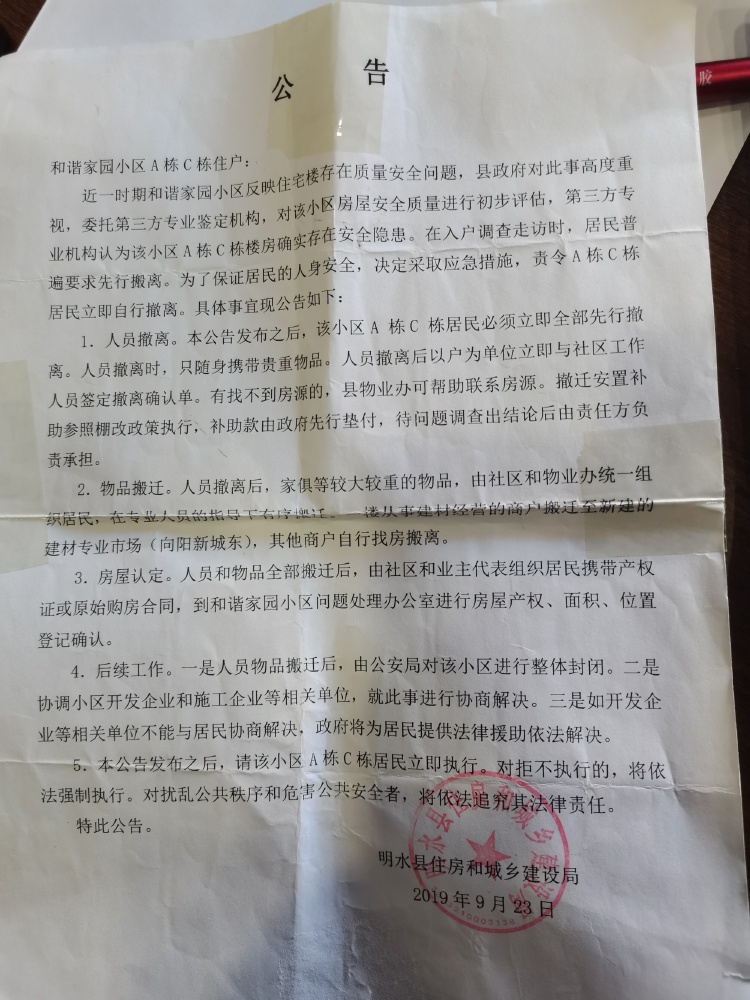 公 告
和谐家园小区A栋C栋住户：
近一时期和谐家园小区反映住宅楼存在质量安全问题，县政府对此事高度重
视，委托第三方专业鉴定机构，对该小区房屋安全质量进行初步评估，第三方专
业机构认为该小区A栋C栋楼房确实存在安全隐患。在入户调查走访时，居民普
遍要求先行搬离。为了保证居民的人身安全，决定采取应急措施，责令A栋C栋
居民立即自行撤离。具体事宜现公告如下：
1．人员撤离。本公告发布之后，该小区A 栋C 栋居民必须立即全部先行撤
离。人员撤离时，只随身携带贵重物品。人员撤离后以户为单位立即与社区工作
人员签定撤离确认单。有找不到房源的，县物业办可帮助联系房源。撤迁安置补
助参照棚改政策执行，补助款由政府先行垫付，待问题调查出结论后由责任方负
责承担。
2．物品搬迁。人员撤离后，家俱等较大较重的物品，由社区和物业办统一组
织居民，在专业人员的指导下有序搬迁。一楼从事建材经营的商户搬迁至新建的
建材专业市场（向阳新城东），其他商户自行找房搬离。
3．房屋认定。人员和物品全部搬迁后，由社区和业主代表组织居民携带产权
证或原始购房合同，到和谐家园小区问题处理办公室进行房屋产权、面积、位置
登记确认。
4．后续工作。一是人员物品搬迁后，由公安局对该小区进行整体封闭。二是
协调小区开发企业和施工企业等相关单位，就此事进行协商解决。三是如开发企
业等相关单位不能与居民协商解决，政府将为居民提供法律援助依法解决。
5．本公告发布之后，请该小区A栋C栋居民立即执行。对拒不执行的，将依
法强制执行。对扰乱公共秩序和危害公共安全者，将依法追究其法律责任。
特此公告。
明水县住房和城乡建设局
2019年9月23日
胶